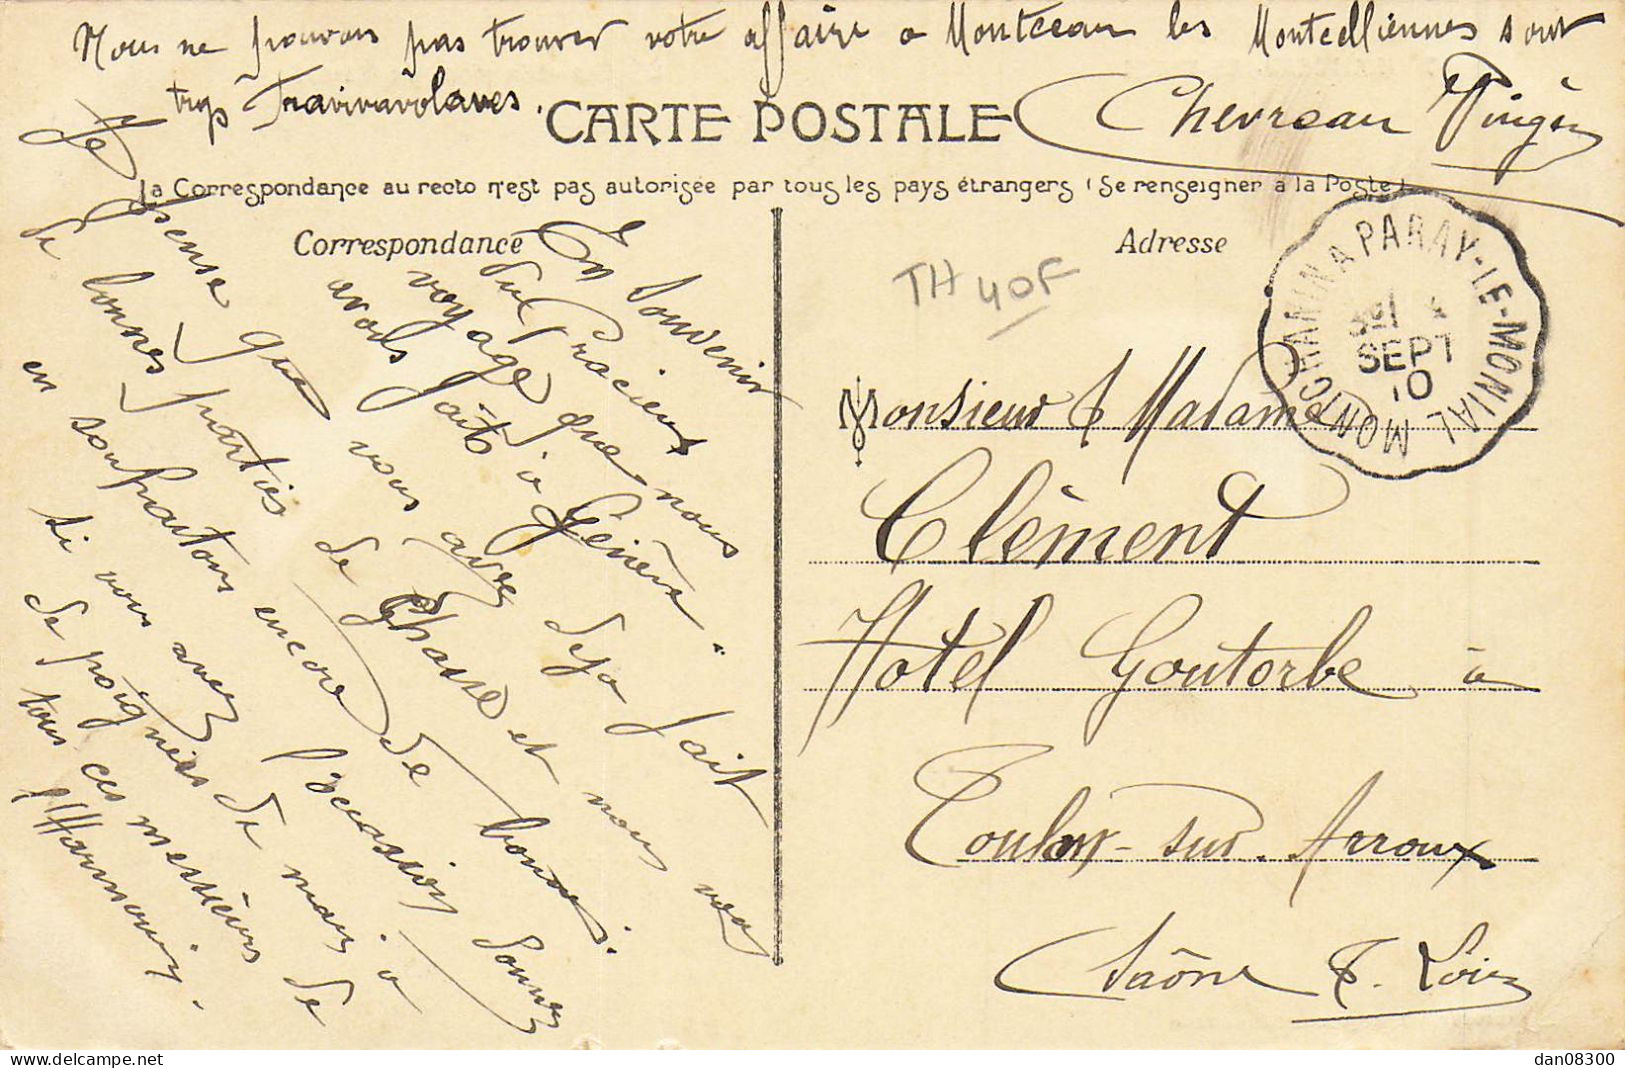 Nous ne pouvons pas trouver votre affaire a Montceau les Montcelliennes sont
trop
Chevreau
CARTE POSTALE
La Correspondance au recto n'est pas autorisée par tous les pays étrangers (Se renseigner à la Poste)
Correspondance
En souvenir
du Gracieux
voyage que nous
avons fait à Genève.
Je pense que vous avez déja fait
de bonnes parties de Chasse et nous vous
en souhaitons encore de bonnes.
Si vous avez l'occasion donnez
de poignées de mains à
tous ces messieurs de
l'Harmonie.
Adresse
TH 40F
MONTCHANIN A PARAY-LE-MONIAL
SEPT
10
Monsieur & Madame
Clément
Hotel Goutorbe à
Toulon-sur-Arroux
Saône & Loire
delcampe.net
dan08300